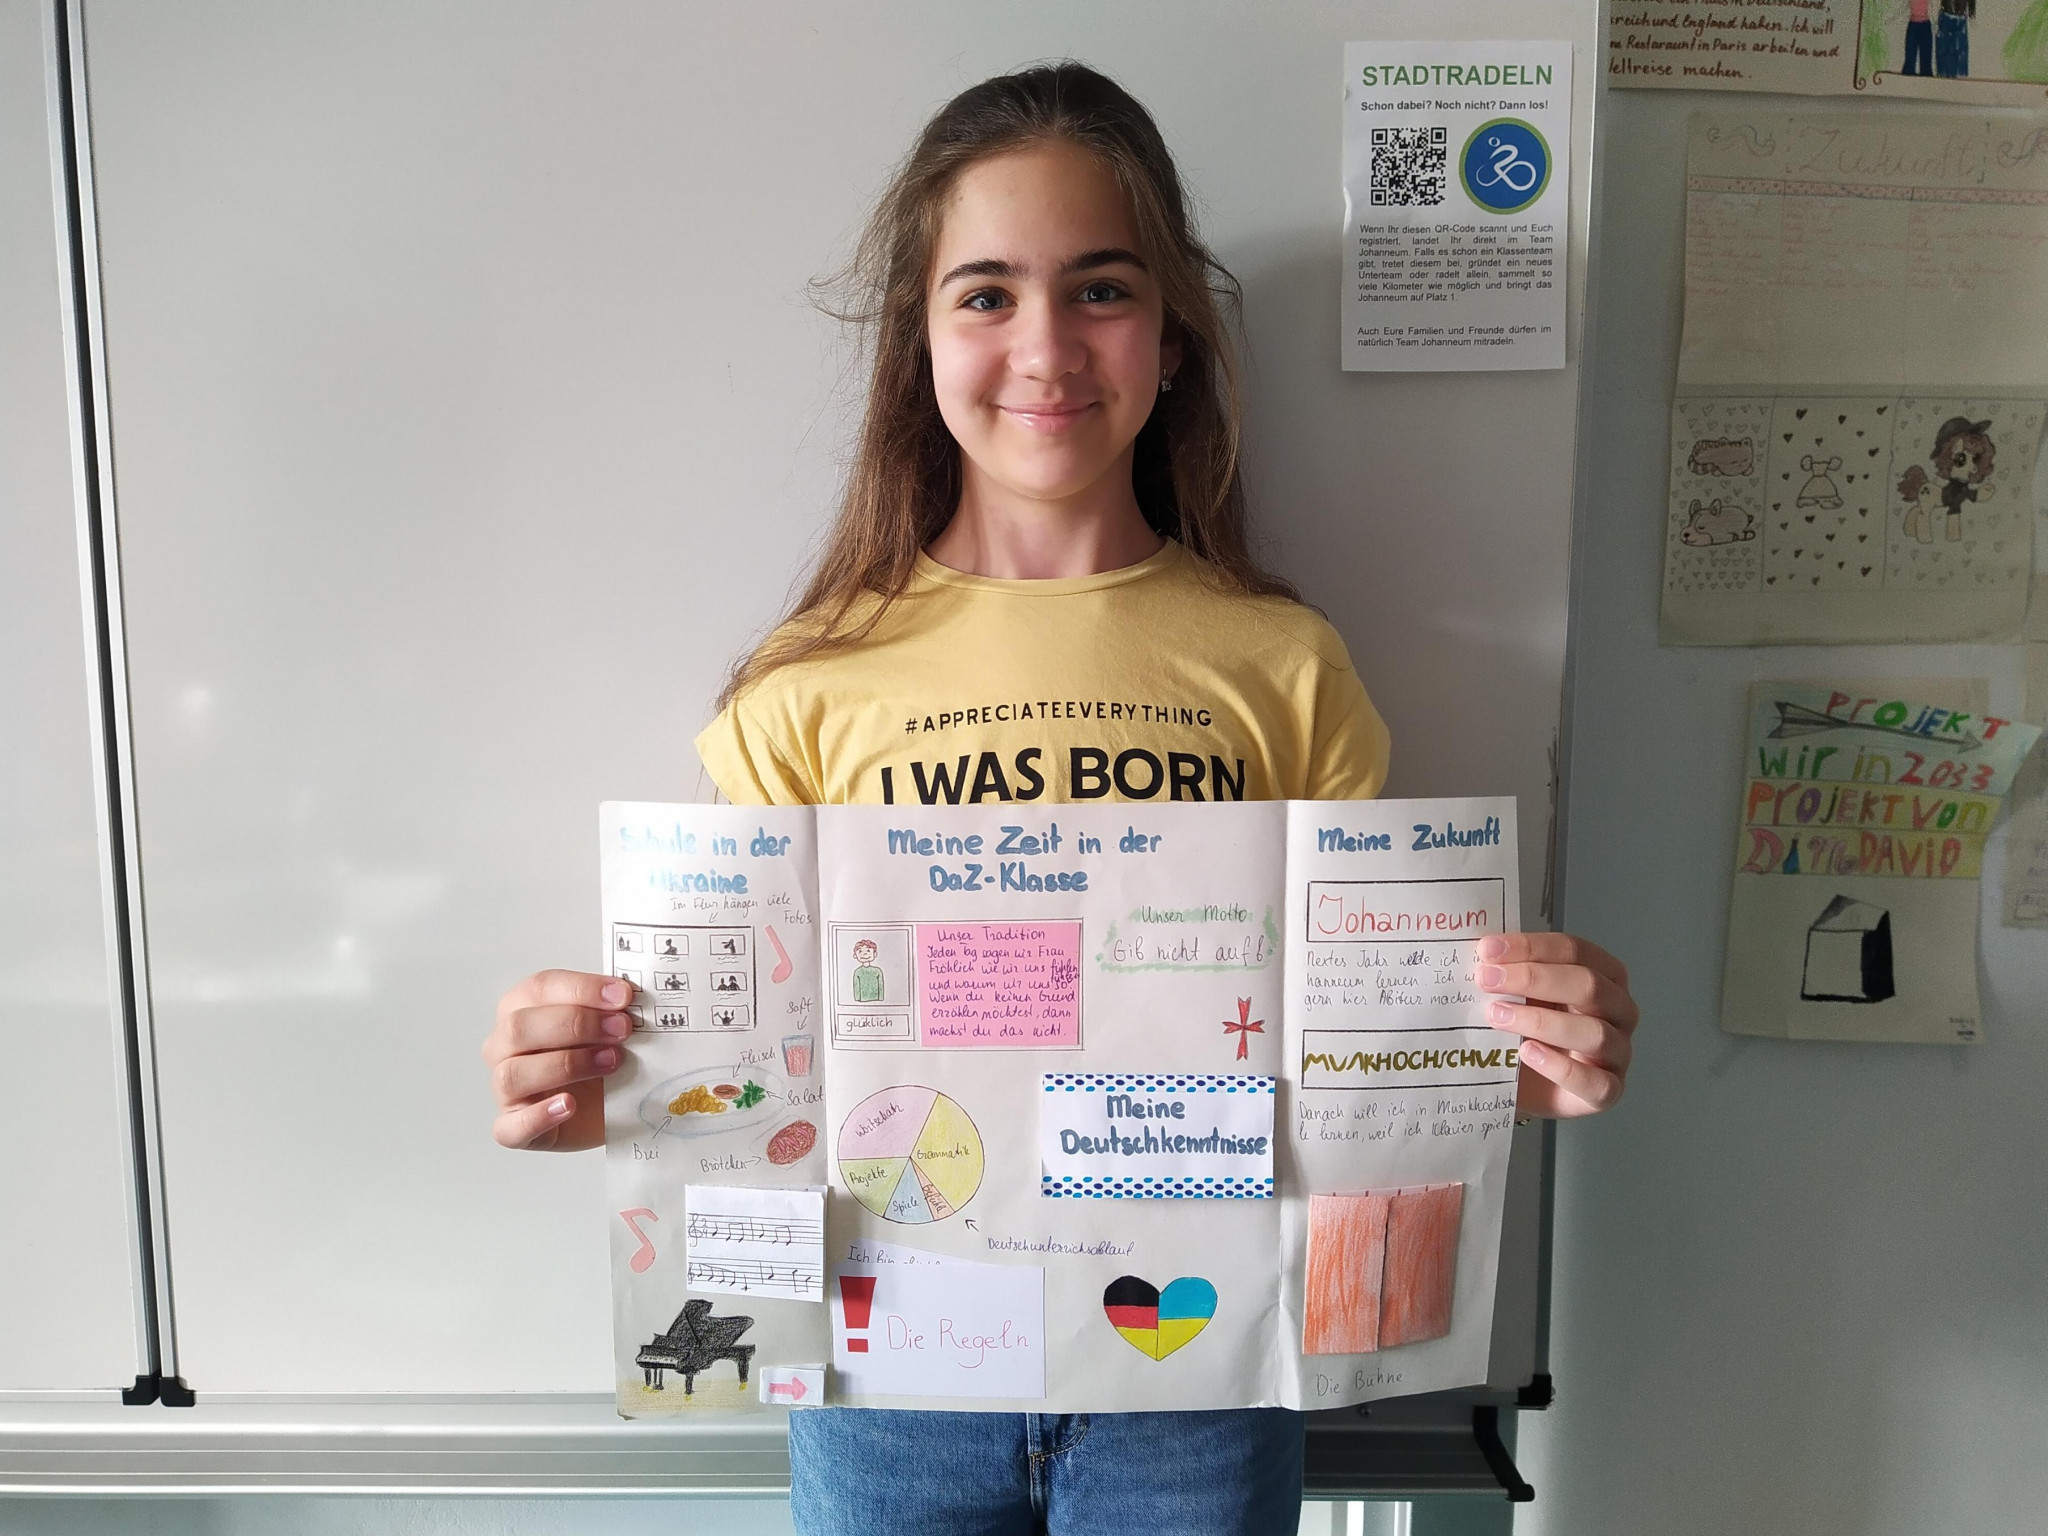 reich und England haben. Ich will
Restaraunt in Paris arbeiten und
Weltreise machen.
STADTRADELN
Schon dabei? Noch nicht? Dann los!
Wenn Ihr diesen QR-Code scannt und Euch
registriert, landet Ihr direkt im Team
Johanneum. Falls es schon ein Klassenteam
gibt, tretet diesem bei, gründet ein neues
Unterteam oder radelt allein, sammelt so
viele Kilometer wie möglich und bringt das
Johanneum auf Platz 1.
Auch Eure Familien und Freunde dürfen im
natürlich Team Johanneum mitradeln.
Zukunft
PROJEKT
Wir in 2033
PROJEKT VON
DAVID
#APPRECIATEEVERYTHING
I WAS BORN
Schule in der
Ukraine
Im Flur hängen viele
Fotos
Saft
Fleisch
Salat
Brei
Brötchen
Meine Zeit in der
DaZ-Klasse
glüklich
Unser Tradition
Jeden Tag sagen wir Frau
Fröhlich wie wir uns fühlen
und warum wir uns so fühlen.
Wenn du keinen Grund
erzählen möchtest, dann
machst du das nicht.
Unser Motto
Gib nicht auf!
Wortschatz
Grammatik
Projekte
Spiele
Deutschunterrichtsablauf
Meine
Deutschkenntnisse
Ich bin
Die Regeln
Meine Zukunft
Johanneum
Nextes Jahr welde ich
hanneum lernen. Ich
gern hier Abitur machen.
MUSIKHOCHSCHULE
Danach will ich in Musikhochschu
le lernen, weil ich Klavier spiele
Die Bühne